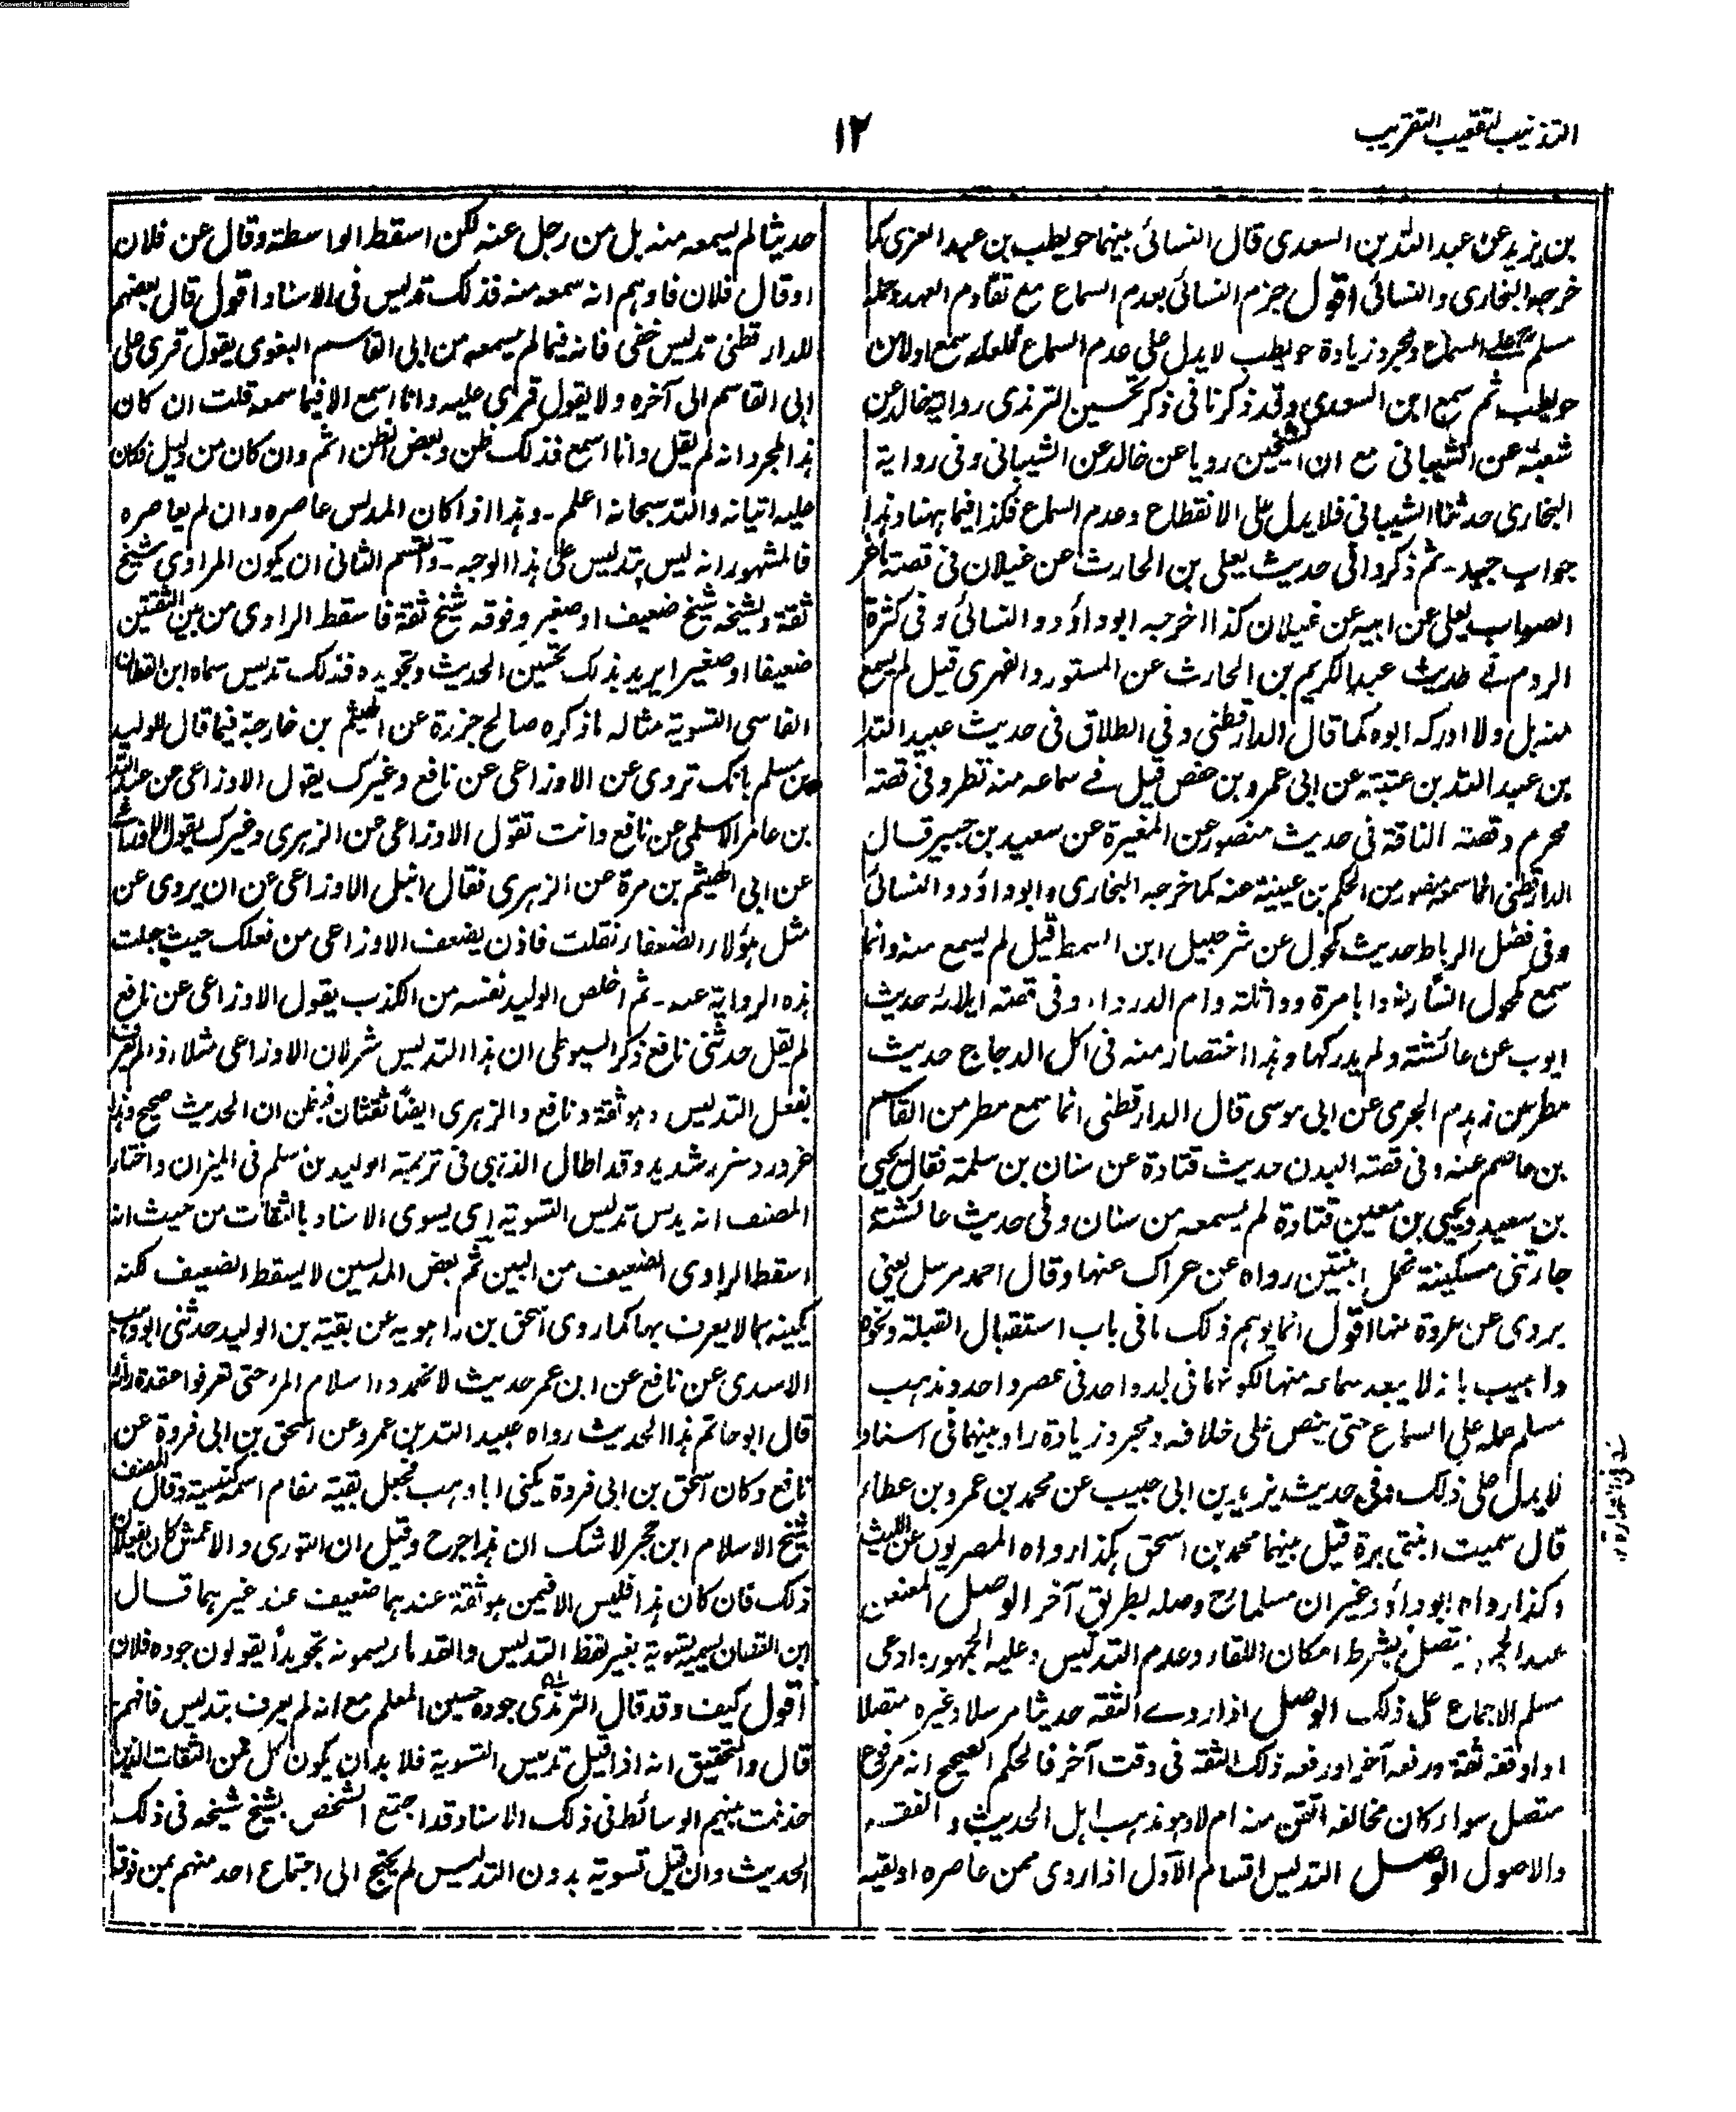 Converted by Tiff Combine - unregistered
التذنيب لتعقيب التقريب
١٢
بن يزيد عن عبد الله بن السعدى قال النسائى بينهما حويطب بن عبد العزى كما
خرجه البخارى والنسائى اقول جزم النسائى بعدم السماع مع تقادم العهد وحمله
مسلم على السماع ومجرد زيادة حويطب لا يدل على عدم السماع فلعله سمع اولا من
حويطب ثم سمع ابن السعدى وقد ذكرنا فى ذكر تحسين الترمذى رواية خالد عن
شعبة عن الشيبانى مع ان الشيخين رويا عن خالد عن الشيبانى وفى رواية
البخارى حدثنا الشيبانى فلا يدل على الانقطاع وعدم السماع فكذا فيما ههنا وهذا
جواب جيد - ثم ذكروا فى حديث يعلى بن الحارث عن غيلان فى قصة ماعز
الصواب يعلى عن ابيه عن غيلان كذا اخرجه ابو داؤد والنسائى وفى كثرة
الروم فى حديث عبد الكريم بن الحارث عن المستورد الفهرى قيل لم يسمع
منه بل ولا ادركه ابوه كما قال الدارقطنى وفى الطلاق فى حديث عبيد الله
بن عبد الله بن عتبة عن ابى عمرو بن حفص قيل فى سماعه منه نظر وفى قصة
محرم وقصته الناقة فى حديث منصور عن المغيرة عن سعيد بن جبير قال
الدارقطنى انما سمعه منصور من الحكم بن عيينة عنه كما خرجه البخارى وابو داؤد والنسائى
وفى فضل الرباط حديث مكحول عن شرحبيل ابن السمط قيل لم يسمع منه وانما
سمع مكحول انسا وابا مرة وواثلة وام الدرداء وفى قصة ايلائه حديث
ايوب عن عائشة ولم يدركها وهذا اختصار منه فى اكل الدجاج حديث
مطر عن زهدم الجرمى عن ابى موسى قال الدارقطنى انما سمع مطر من القاسم
بن عاصم عنه وفى قصة البدن حديث قتادة عن سنان بن سلمة فقال يحيى
بن سعيد ويحيى بن معين قتادة لم يسمعه من سنان وفى حديث عائشة
جاءتنى مسكينة تحمل ابنتين رواه عن عراك عنها وقال احمد مرسل يعنى
يروى عن عروة عنها اقول انما يوهم ذلك ما فى باب استقبال القبلة ونحوه
واجيب بانه لا يبعد سماعه منها لكونهما فى بلد واحد فى عصر واحد ومذهب
مسلم حمله على السماع حتى ينص على خلافه ومجرد زيادة راو بينهما فى اسناد
لا يدل على ذلك وفى حديث يزيد بن ابى حبيب عن محمد بن عمرو بن عطاء
قال سميت ابنتى برة قيل بينهما محمد بن اسحق هكذا رواه المصريون عن الليث
وكذا رواه ابو داؤد غير ان مسلما وصله بطريق آخر الوصل المعنعن
عند الجمهور متصل بشرط امكان اللقاء وعدم التدليس وعليه الجمهور وادعى
مسلم الاجماع على ذلك الوصل اذا روى الثقة حديثا مرسلا وغيره متصلا
او اوقفه ثقة ورفعه آخر او رفعه ذلك الثقة فى وقت آخر فالحكم الصحيح انه مرفوع
متصل سواء كان مخالفه اتقن منه ام لا وهو مذهب اهل الحديث والفقه
والاصول الوصل التدليس اقسام الاول اذا روى ممن عاصره او لقيه
حديثا لم يسمعه منه بل من رجل عنه لكن اسقط الواسطة وقال عن فلان
او قال فلان فاوهم انه سمعه منه فذلك تدليس فى الاسناد اقول قال بعضهم
للدارقطنى تدليس خفى فانه فيما لم يسمعه من ابى القاسم البغوى يقول قرى على
ابى القاسم الى آخره ولا يقول قرى عليه وانا اسمع الا فيما سمعه قلت ان كان
هذا لمجرد انه لم يقل وانا اسمع فذلك ظن وبعض الظن اثم وان كان من دليل فكان
عليه اتيانه والله سبحانه اعلم - وهذا اذا كان المدلس عاصره وان لم يعاصره
فالمشهور انه ليس بتدليس على هذا الوجه - والقسم الثانى ان يكون الراوى شيخ
ثقة وشيخه شيخ ضعيف او صغير وفوقه شيخ ثقة فاسقط الراوى من بين الثقتين
ضعيفا او صغيرا يريد بذلك تحسين الحديث وتجويده فذلك تدليس سماه ابن القطان
الفاسى التسوية مثاله ما ذكره صالح جزرة عن الهيثم بن خارجة فيما قال للوليد
بن مسلم بانك تروى عن الاوزاعى عن نافع وغيرك يقول الاوزاعى عن عبد الله
بن عامر الاسلمى عن نافع وانت تقول الاوزاعى عن الزهرى وغيرك يقول الاوزاعى
عن ابى الهيثم بن مرة عن الزهرى فقال انبل الاوزاعى عن ان يروى عن
مثل هؤلاء الضعفاء فقلت فاذن يضعف الاوزاعى من فعلك حيث جعلت
هذه الرواية عنه - ثم اخلص الوليد نفسه من الكذب يقول الاوزاعى عن نافع
لم يقل حدثنى نافع ذكر السيوطى ان هذا التدليس شر لان الاوزاعى مثلا اذا لم يعرف
بفعل التدليس وهو ثقة ونافع والزهرى ايضا ثقتان فيظن ان الحديث صحيح وهذا
غرور وضرر شديد وقد اطال الذهبى فى ترجمة الوليد بن مسلم فى الميزان واختار
المصنف انه يدلس تدليس التسوية اى يسوى الاسناد بالثقات من حيث انه
اسقط الراوى الضعيف من البين ثم بعض المدلسين لا يسقط الضعيف لكنه
يكنيه بما لا يعرف بها كما روى اسحق بن راهويه عن بقية بن الوليد حدثنى ابو وهب
الاسدى عن نافع عن ابن عمر حديث لا تحمدوا اسلام المرء حتى تعرفوا عقدة رائه
قال ابو حاتم هذا الحديث رواه عبيد الله بن عمرو عن اسحق بن ابى فروة عن
نافع وكان اسحق بن ابى فروة يكنى ابا وهب فجعل بقية مقام اسمه كنيته وقال المصنف
شيخ الاسلام ابن حجر لا شك ان هذا جرح وقيل ان الثورى والاعمش كان يفعلان
ذلك فان كان هذا فليس الا فيمن هو ثقة عندهما ضعيف عند غيرهما قال
ابن القطان يسميه تسوية بغير لفظ التدليس والقدماء يسمونه تجويداً يقولون جوده فلان
اقول كيف وقد قال الترمذى جوده حسين المعلم مع انه لم يعرف بتدليس فافهم
قال والتحقيق انه اذا قيل تدليس التسوية فلا بد ان يكون كل من الثقات الذين
حذفت بينهم الوسائط فى ذلك الاسناد قد اجتمع الشخص بشيخ شيخه فى ذلك
الحديث وان قيل تسوية بدون التدليس لم يحتج الى اجتماع احد منهم بمن فوقه